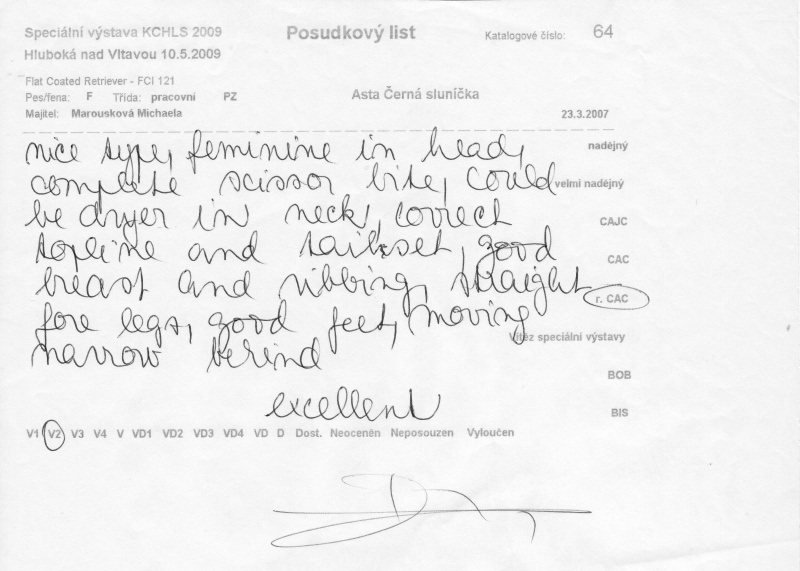 Speciální výstava KCHLS 2009 Posudkový list Katalogové číslo: 64
Hluboká nad Vltavou 10.5.2009
Flat Coated Retriever - FCI 121
Pes/fena: F Třída: pracovní PZ Asta Černá sluníčka
Majitel: Marousková Michaela 23.3.2007
nice type, feminine in head, nadějný
complete scissor bite, could velmi nadějný
be dryer in neck, correct CAJC
topline and tailset, good CAC
breast and ribbing, straight r. CAC
fore legs, good feet, moving
Vítěz speciální výstavy
narrow behind BOB
excellent BIS
V1 V2 V3 V4 V VD1 VD2 VD3 VD4 VD D Dost. Neoceněn Neposouzen Vyloučen